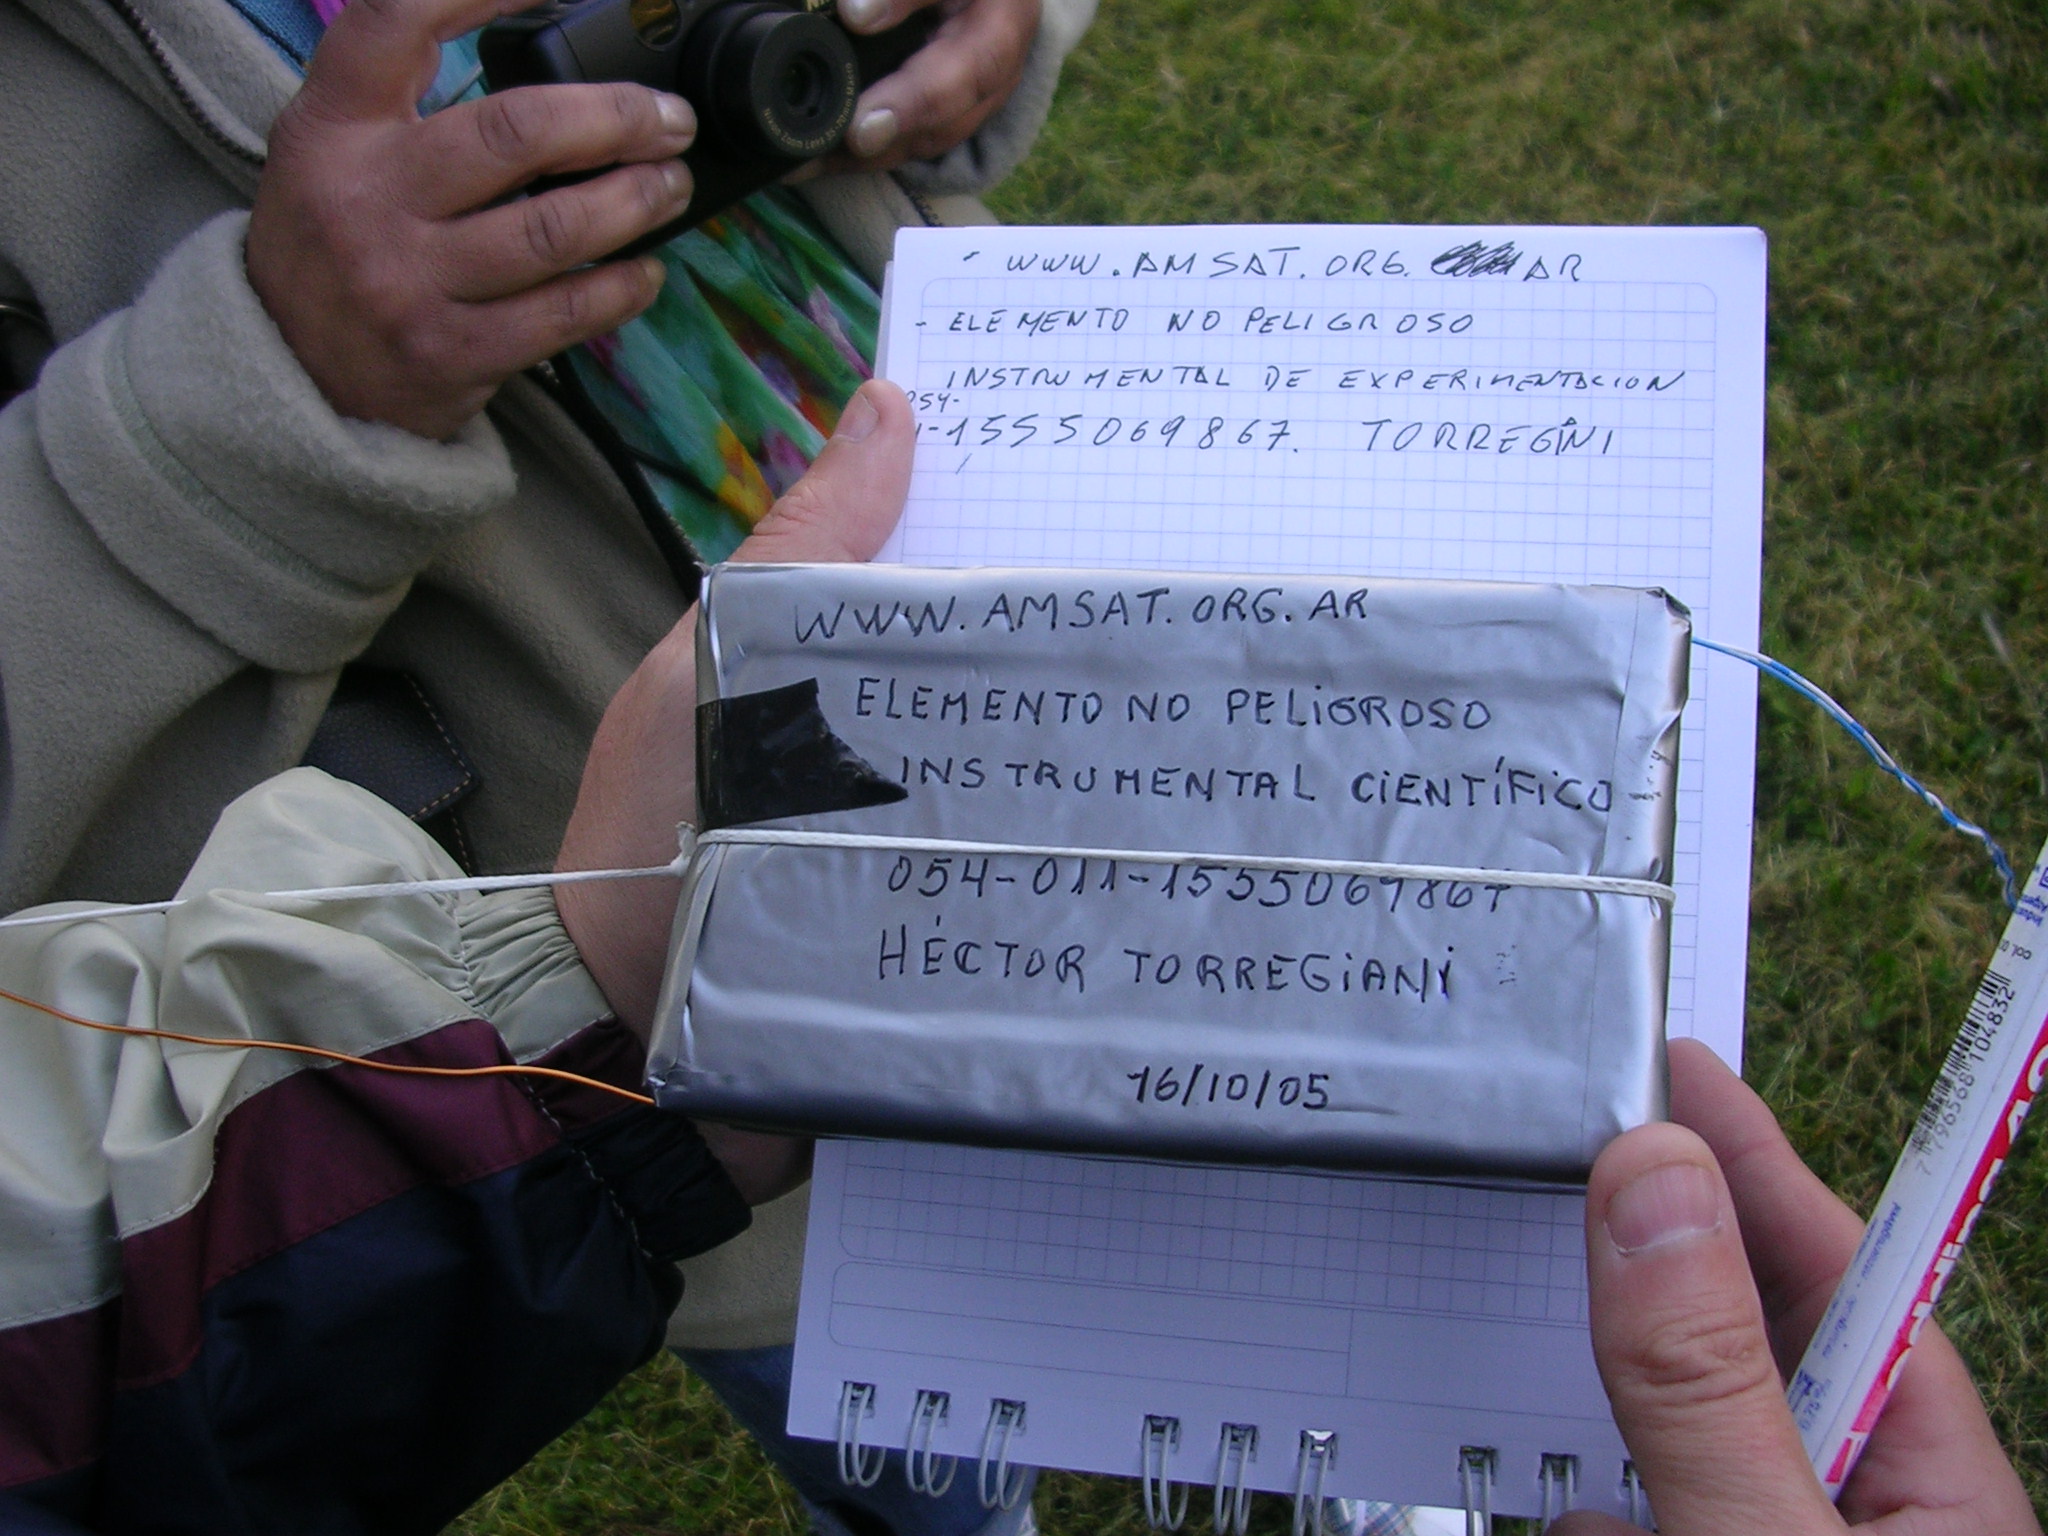 Nikon Zoom Lens
- WWW.AMSAT.ORG. AR
- ELEMENTO NO PELIGROSO
INSTRUMENTAL DE EXPERIMENTACION
054-
1-1555069867. TORREGINI
WWW.AMSAT.ORG.AR
ELEMENTO NO PELIGROSO
INSTRUMENTAL CIENTÍFICO
054-011-1555069867
HÉCTOR TORREGIANI
16/10/05
7 796568 104832